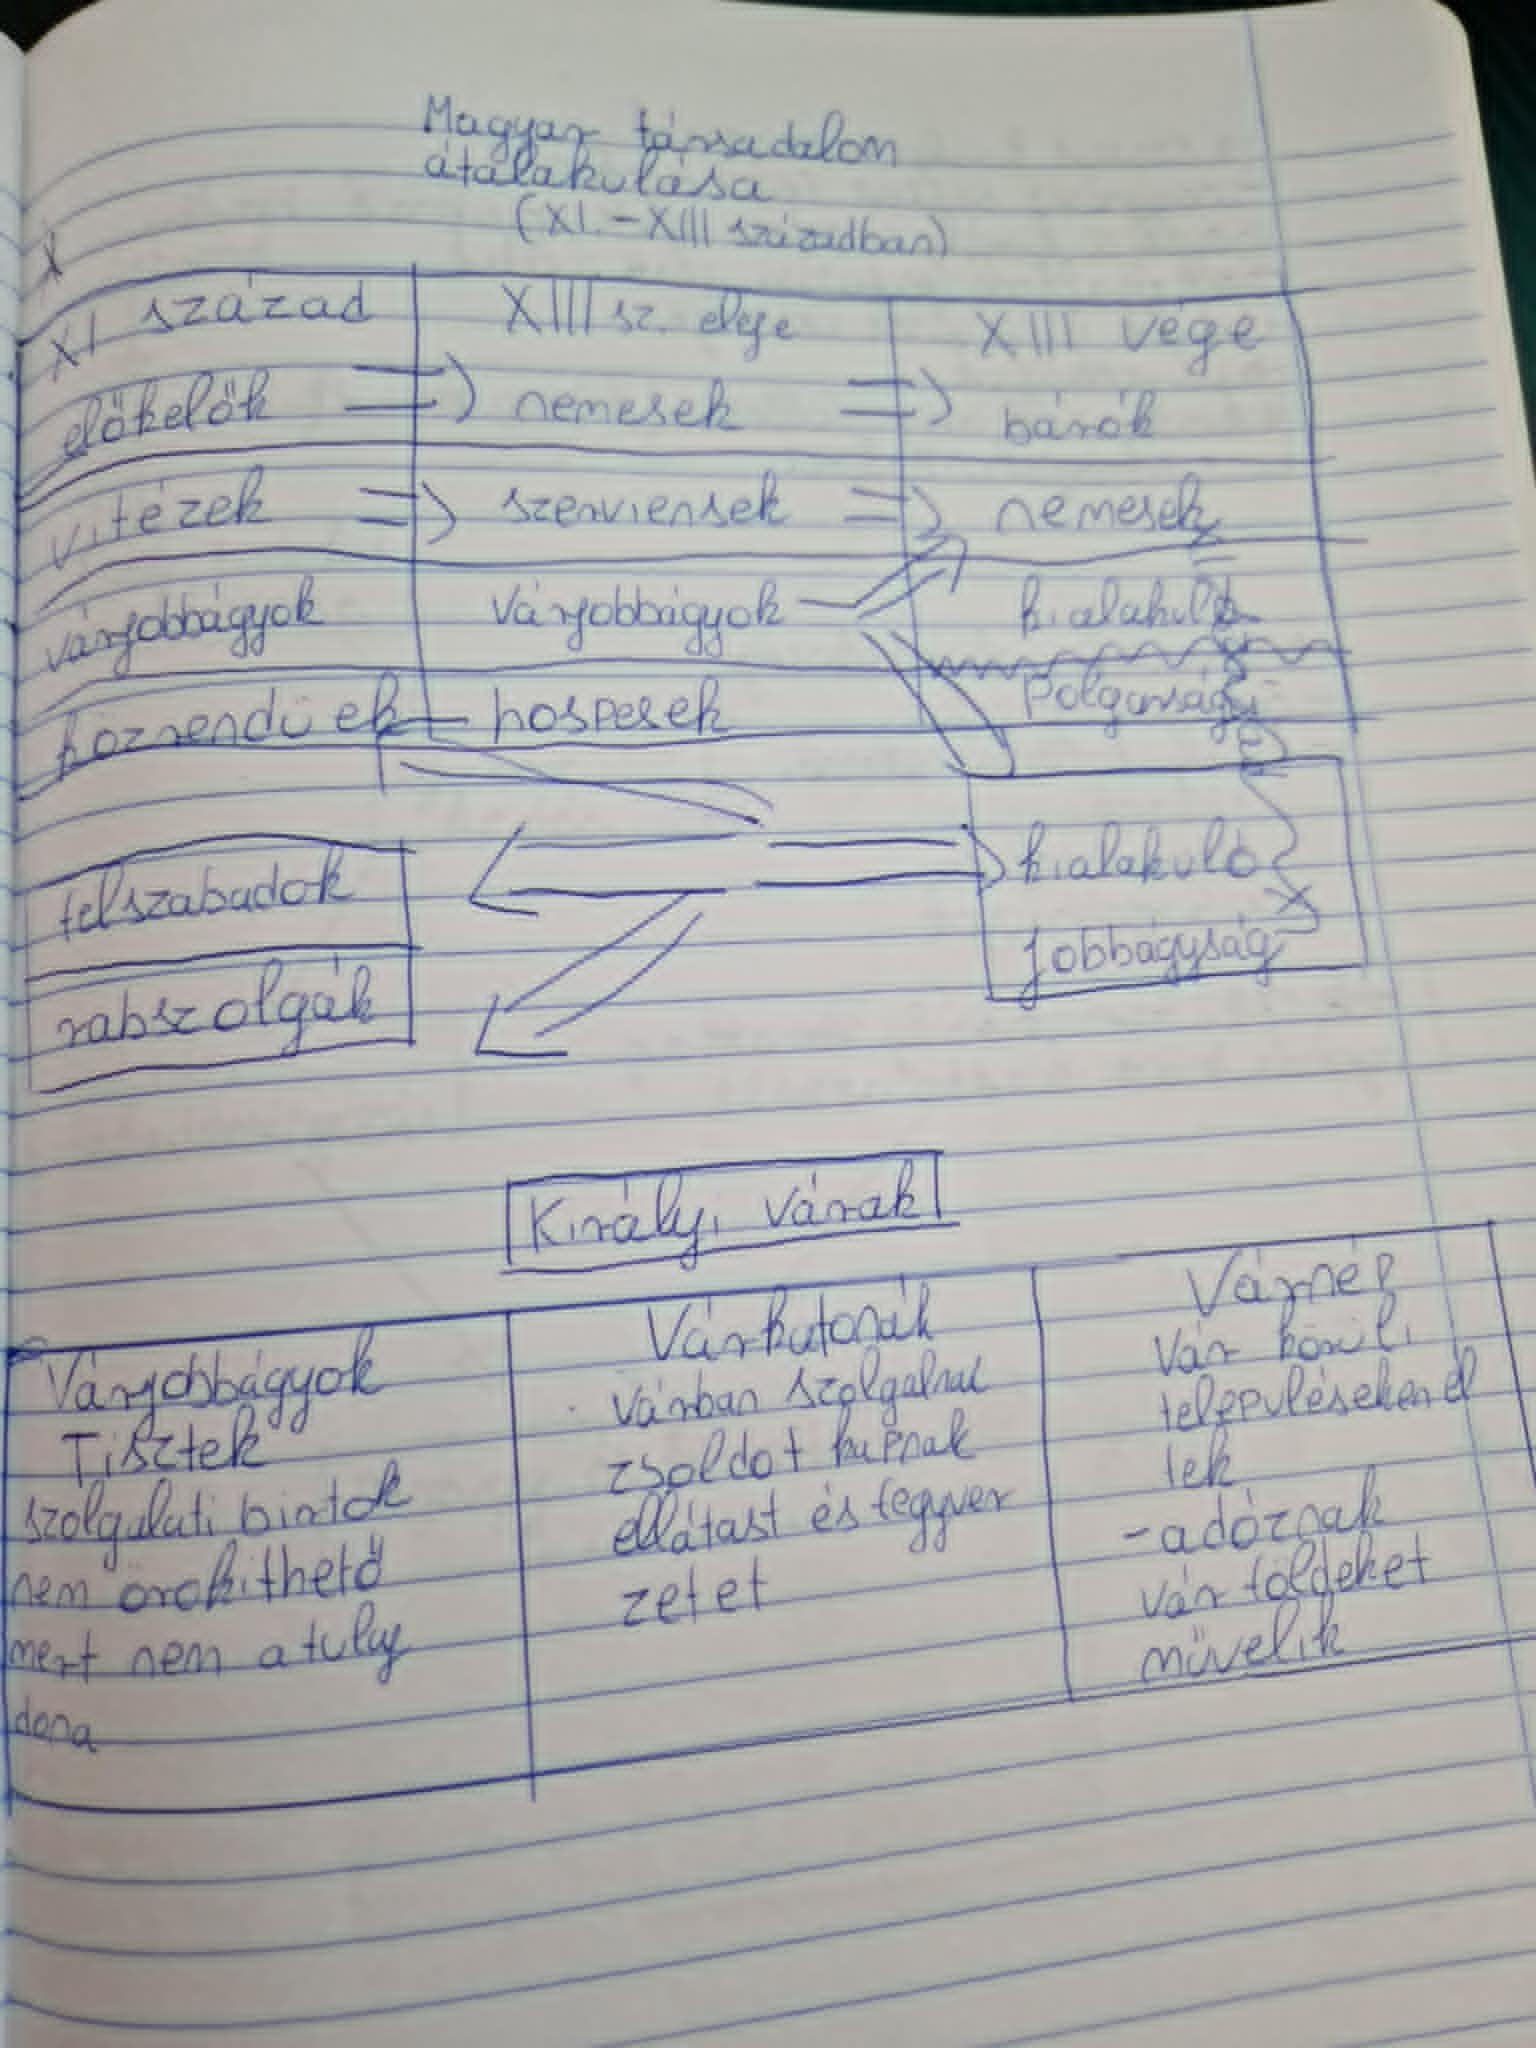 Magyar társadalom
átalakulása
(XI. - XIII században)
X
XI század XIII sz. eleje XIII vége
előkelők => nemesek => bárók
vitézek => szerviensek => nemesek
várjobbágyok várjobbágyok kialakuló
polgárság
közrendűek hospesek
kialakuló
jobbágyság
félszabadok
rabszolgák
Királyi várak
Várjobbágyok
Tisztek
szolgálati birtok
nem örökíthető
mert nem a tulaj
dona
Várkatonák
várban szolgálnak
zsoldot kapnak
ellátást és fegyver
zetet
Várnép
Vár körüli
településeken él
tek
- adóznak
vár földeket
művelik